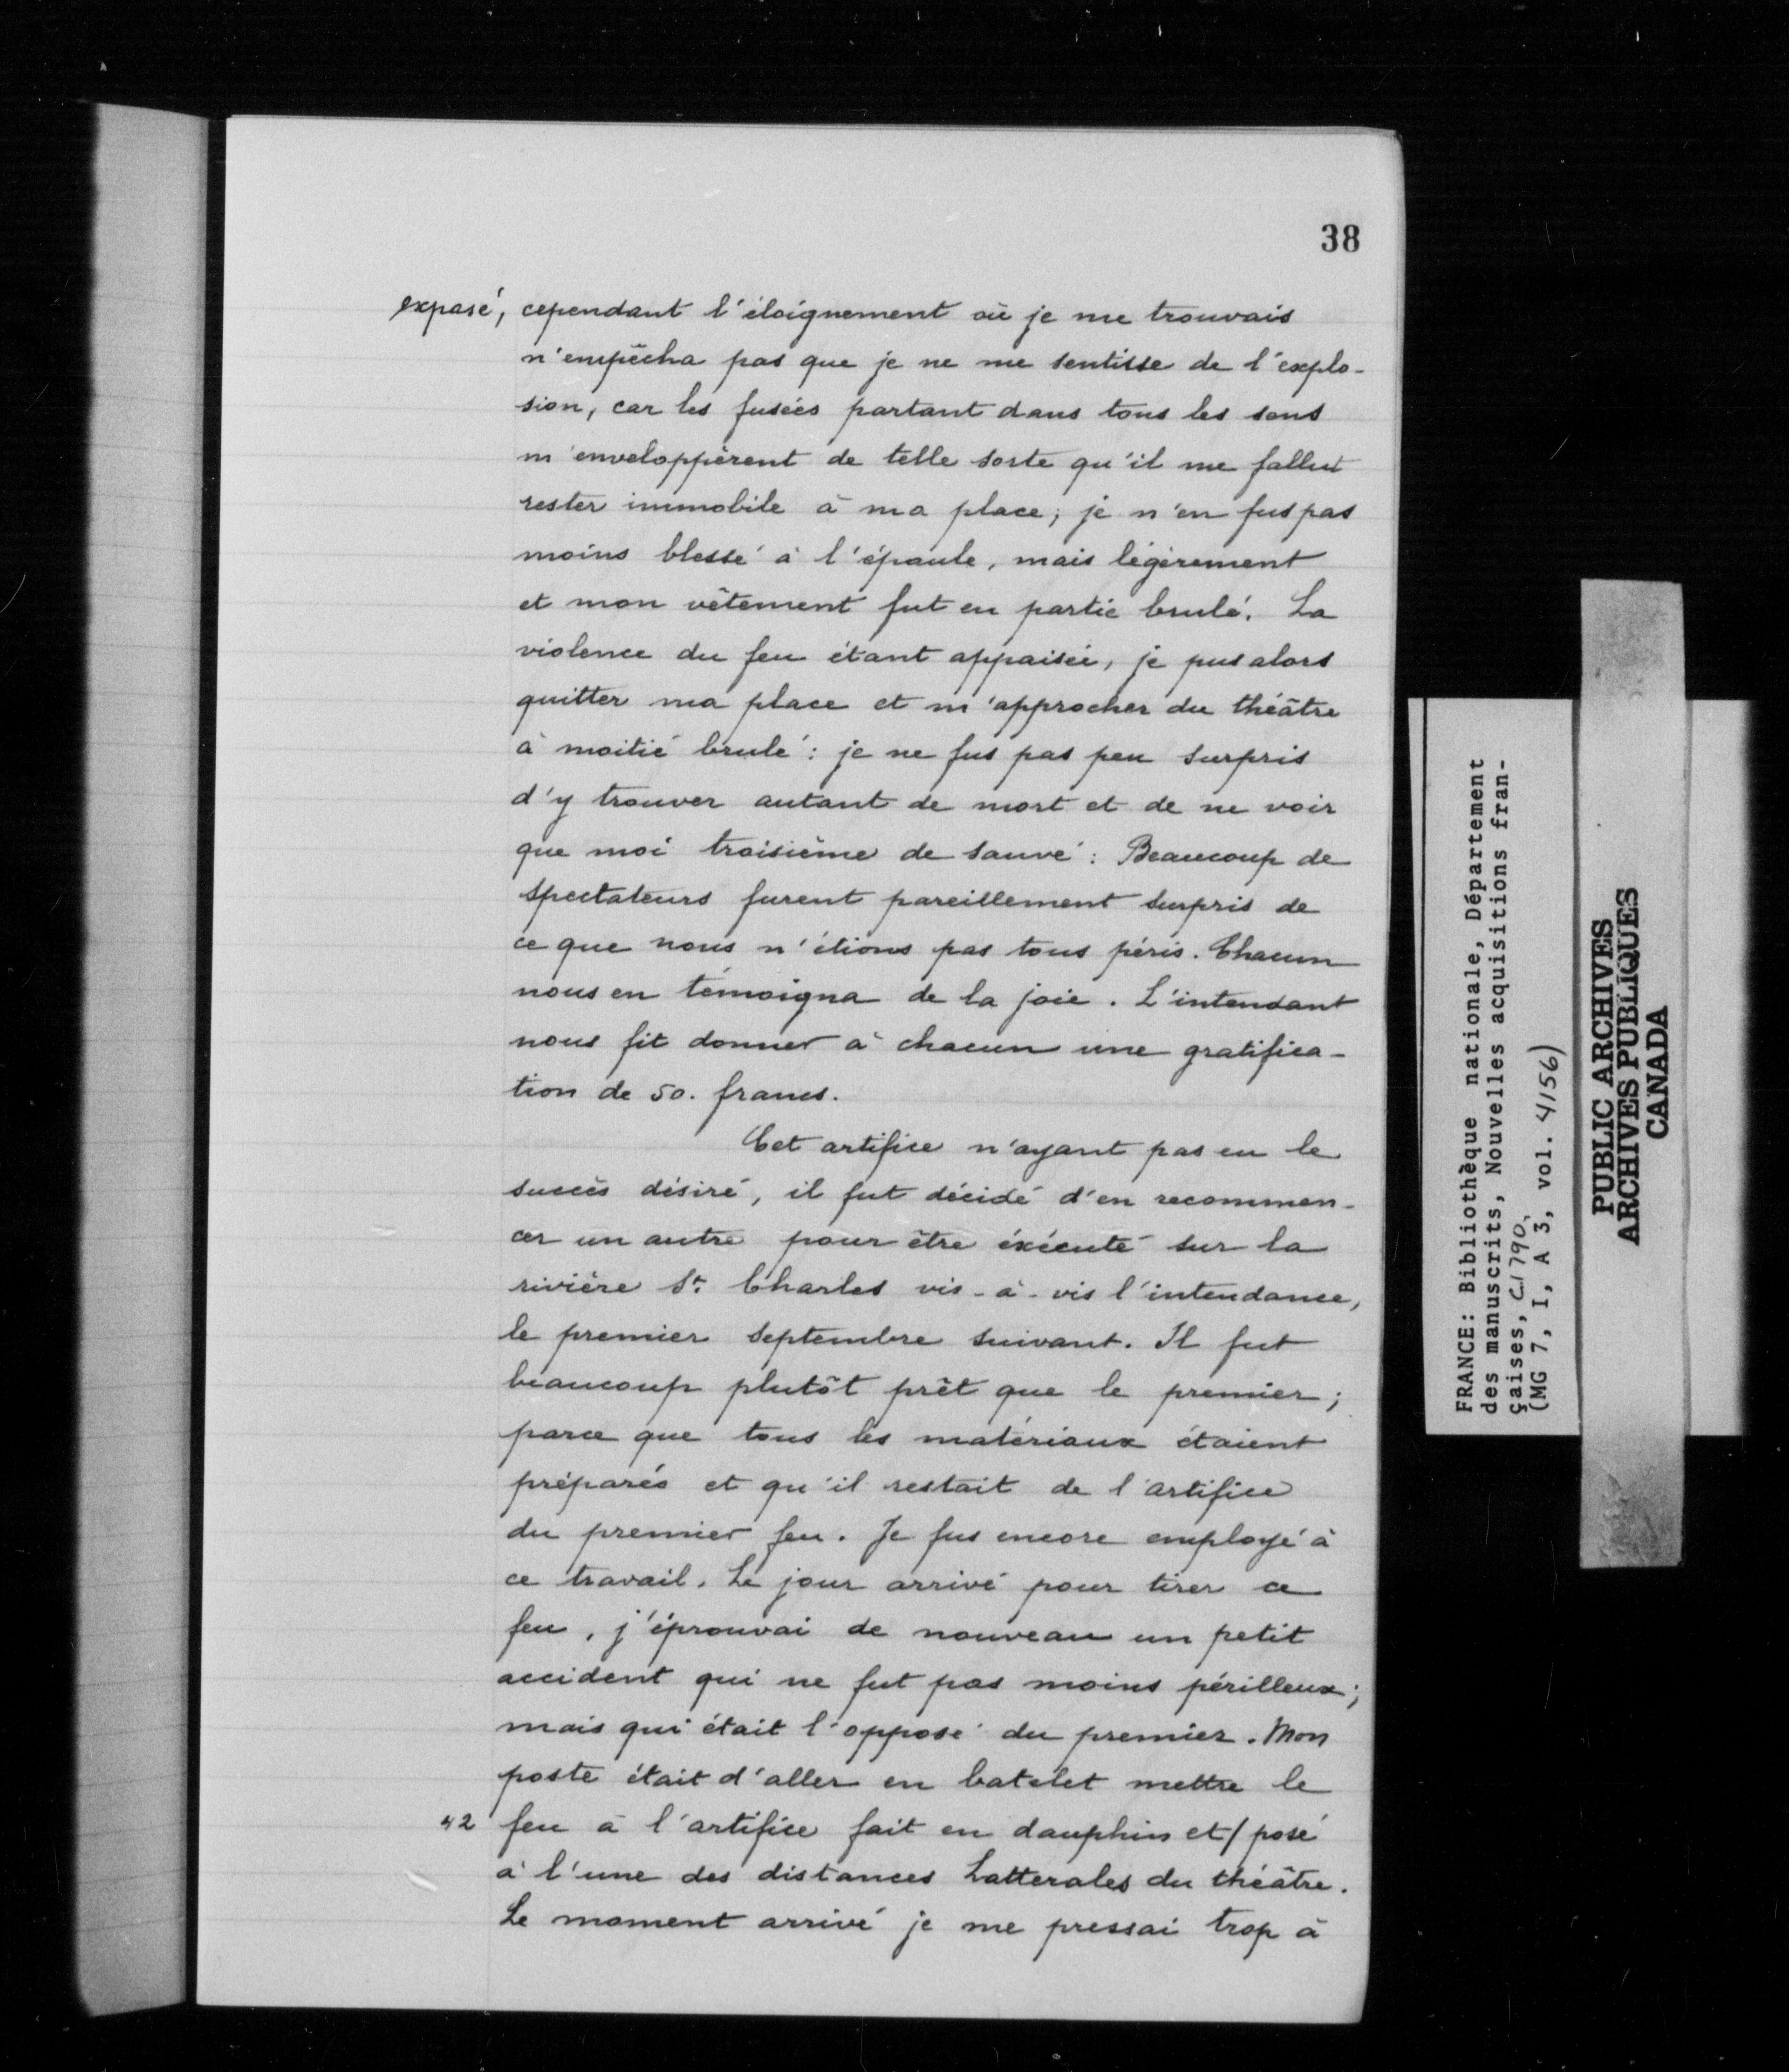 38
exposé, cependant l'éloignement où je me trouvais
n'empêcha pas que je ne me sentisse de l'explo-
sion, car les fusées partant dans tous les sens
m'enveloppèrent de telle sorte qu'il me fallut
rester immobile à ma place; je n'en fus pas
moins blessé à l'épaule, mais légèrement
et mon vêtement fut en partie brulé. La
violence du feu étant appaisée, je pus alors
quitter ma place et m'approcher du théâtre
à moitié brulé: je ne fus pas peu surpris
d'y trouver autant de mort et de ne voir
que moi troisième de sauvé: Beaucoup de
spectateurs furent pareillement surpris de
ce que nous n'étions pas tous péris. Chacun
nous en témoigna de la joie. L'intendant
nous fit donner à chacun une gratifica-
tion de 50. francs.
Cet artifice n'ayant pas eu le
succès désiré, il fut décidé d'en recommen-
cer un autre pour être éxécuté sur la
rivière St. Charles vis-à-vis l'intendance,
le premier septembre suivant. Il fut
beaucoup plutôt prêt que le premier;
parce que tous les matériaux étaient
préparés et qu'il restait de l'artifice
du premier feu. Je fus encore employé à
ce travail. Le jour arrivé pour tirer ce
feu, j'éprouvai de nouveau un petit
accident qui ne fut pas moins périlleux;
mais qui était l'opposé du premier. Mon
poste était d'aller en batelet mettre le
42 feu à l'artifice fait en dauphin et/posé
à l'une des distances Latterales du théâtre.
Le moment arrivé je me pressai trop à
FRANCE: Bibliothèque nationale, Département
des manuscrits, Nouvelles acquisitions fran-
çaises, C.1790,
(MG 7, I, A 3, vol. 4156)
PUBLIC ARCHIVES
ARCHIVES PUBLIQUES
CANADA